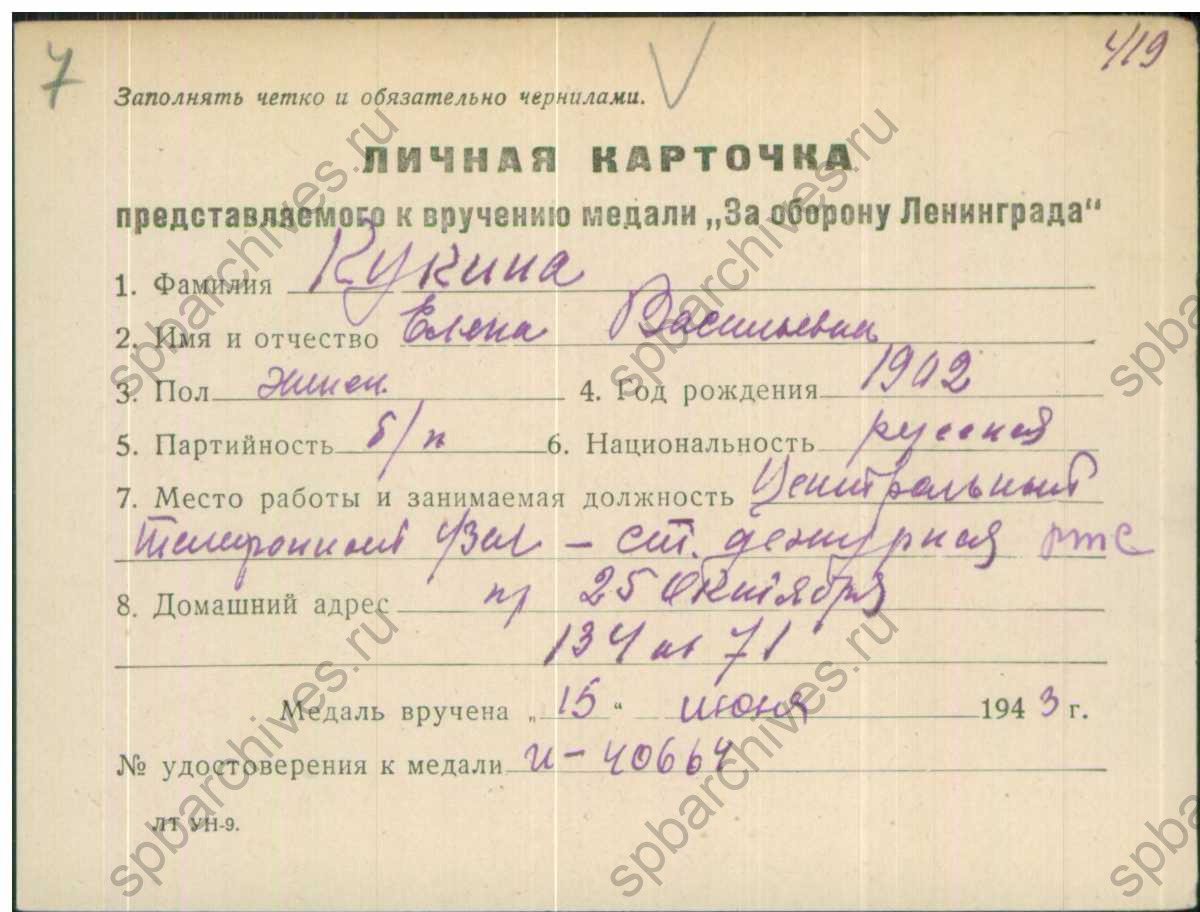 7 419
Заполнять четко и обязательно чернилами.
ЛИЧНАЯ КАРТОЧКА
представляемого к вручению медали „За оборону Ленинграда“
1. Фамилия Кукина
2. Имя и отчество Елена Васильевна
3. Пол женск. 4. Год рождения 1902
5. Партийность б/п 6. Национальность русская
7. Место работы и занимаемая должность Центральный
телефонный узел – ст. дежурная РТС
8. Домашний адрес пр 25 Октября
134 кв 71
Медаль вручена „15“ июня 1943 г.
№ удостоверения к медали И-40664
ЛТ УН-9.
spbarchives.ru
spbarchives.ru
spbarchives.ru
spbarchives.ru